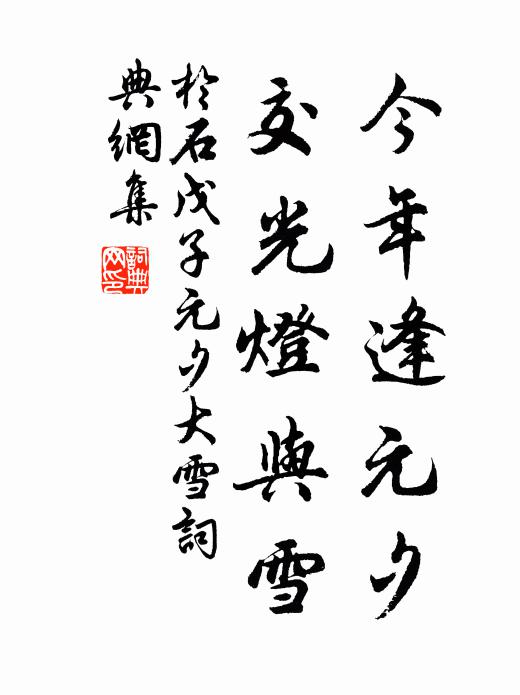 今年逢元夕
交光燈與雪
於石戊子元夕大雪詞
典網集
詞典
网印